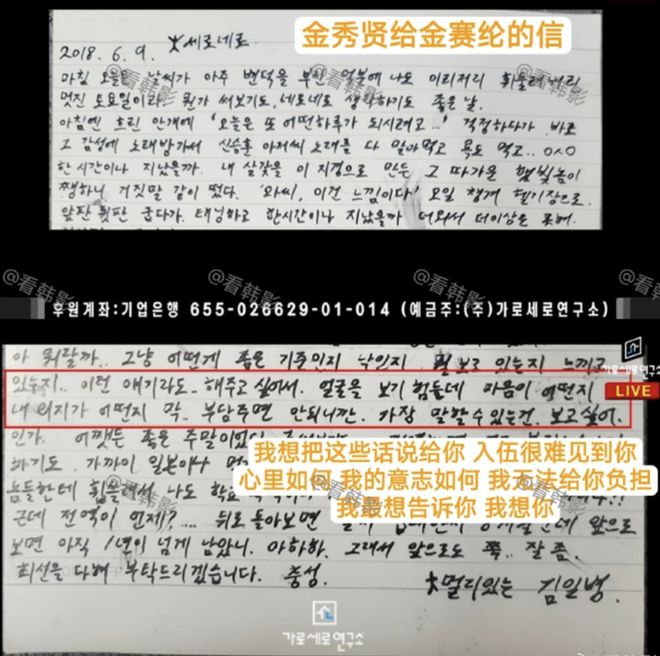 金秀贤给金赛纶的信
2018. 6. 9. 大세로네로
마침 오늘은 날씨가 아주 변덕을 부린 덕분에 나도 이리저리 휘둘려버린
멋진 토요일이라. 뭔가 써보기도, 네로네로 생각하기도 좋은 날.
아침엔 흐린 안개에 '오늘은 또 어떤하루가 되시려고...' 걱정하다가 바로
그 감성에 노래방가서 신승훈 아저씨 노래를 다 잊어먹고 욕도 먹고.. ㅇㅅㅇ
한 시간이나 지났을까. 내 살갗을 이 지경으로 만든 그 따가운 햇빛놈이
쨍하니 거짓말 같이 떴다. '와씨, 이건 느낌이다' 오일 챙겨 헬기장으로.
앞판 뒷판 굽다가. 태닝하고 한시간이나 지났을까 더워서 더이상은 못해.
@看韩影 @看韩影 @看韩影
후원계좌:기업은행 655-026629-01-014 (예금주:(주)가로세로연구소)
아 뭐랄까.. 그냥 어떻게 좋은 기준인지 낙인지 뭘 보고 있는지 느끼고
가로세로연구소
LIVE
있는지.. 이런 얘기라도.. 해주고 싶어서. 얼굴을 보기 힘든데 마음이 어떤지
내 의지가 어떤지 막.. 부담주면 안되니깐. 가장 말할수 있는건. 보고싶어.
인가. 어쨌든 좋은 주말이었다
我想把这些话说给你 入伍很难见到你
하기도. 가까이 일본이나
心里如何 我的意志如何 我无法给你负担
놈들한테 휘둘려서 나도
我最想告诉你 我想你
근데 전역이 언제?.... 뒤로 돌아보면 앞으로
보면 아직 1년이 넘게 남았니. 아하하. 그래서 앞으로도 쭉.. 잘 좀.
최선을 다해 부탁드리겠습니다. 충성.
大멀리있는 김일병.
가로세로연구소